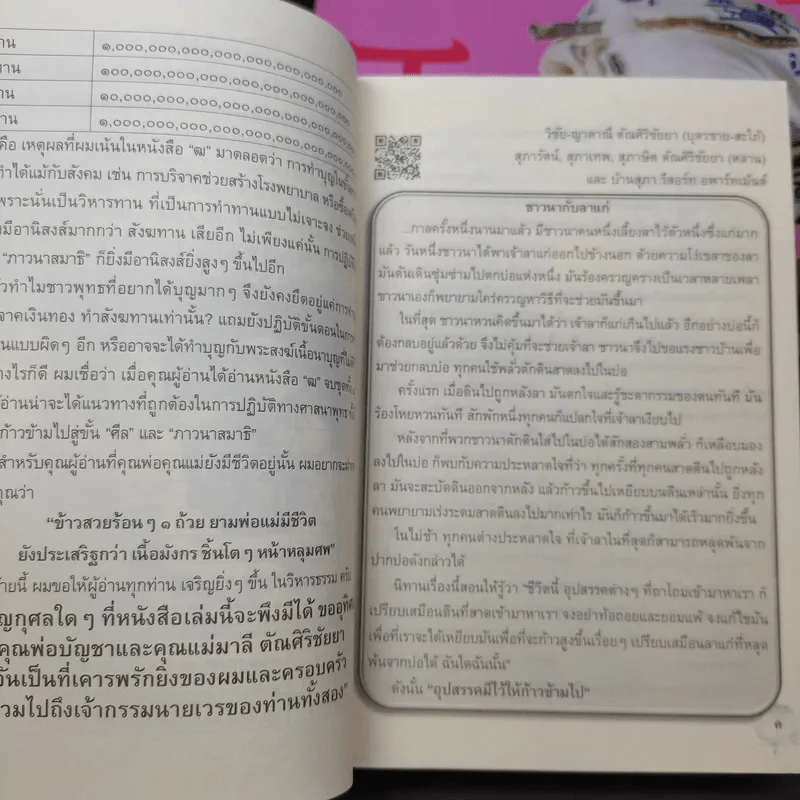 ทาน ๑,๐๐๐,๐๐๐,๐๐๐,๐๐๐,๐๐๐,๐๐๐,๐๐๐
ทาน ๑๐๐,๐๐๐,๐๐๐,๐๐๐,๐๐๐,๐๐๐,๐๐๐,๐๐๐
ทาน ๑๐,๐๐๐,๐๐๐,๐๐๐,๐๐๐,๐๐๐,๐๐๐,๐๐๐,๐๐๐
ทาน ๑,๐๐๐,๐๐๐,๐๐๐,๐๐๐,๐๐๐,๐๐๐,๐๐๐,๐๐๐
คือ เหตุผลที่ผมเน้นในหนังสือ “ฒ” มาตลอดว่า การทำบุญในชั้น
ทำได้แม้กับสังคม เช่น การบริจาคช่วยสร้างโรงพยาบาล หรือซื้อ
เพราะนั่นเป็นวิหารทาน ที่เป็นการทำทานแบบไม่เจาะจง
มีอานิสงส์มากกว่า สังฆทาน เสียอีก ไม่เพียงแค่นั้น การปฏิบัติ
“ภาวนาสมาธิ” ก็ยิ่งมีอานิสงส์ยิ่งสูงๆ ขึ้นไปอีก
ทำไมชาวพุทธที่อยากได้บุญมากๆ จึงยังคงยึดอยู่แค่การทำ
จาคเงินทอง ทำสังฆทานเท่านั้น? แถมยังปฏิบัติขั้นตอนในการ
นแบบผิดๆ อีก หรืออาจจะได้ทำบุญกับพระสงฆ์เนื้อนาบุญที่
างไรก็ดี ผมเชื่อว่า เมื่อคุณผู้อ่านได้อ่านหนังสือ “ฒ” จบชุด
อ่านน่าจะได้แนวทางที่ถูกต้องในการปฏิบัติทางศาสนาพุทธ
ก้าวข้ามไปสู่ขั้น “ศีล” และ “ภาวนาสมาธิ”
สำหรับคุณผู้อ่านที่คุณพ่อคุณแม่ยังมีชีวิตอยู่นั้น ผมอยากจะฝาก
คุณว่า
“ข้าวสวยร้อนๆ ๑ ถ้วย ยามพ่อแม่มีชีวิต
ยังประเสริฐกว่า เนื้อมังกร ชิ้นโตๆ หน้าหลุมศพ”
ท้ายนี้ ผมขอให้ผู้อ่านทุกท่าน เจริญยิ่งๆ ขึ้น ในวิหารธรรม ครับ
ญกุศลใดๆ ที่หนังสือเล่มนี้จะพึงมีได้ ขออุทิศ
คุณพ่อบัญชาและคุณแม่มาลี ตัณศิริชัยยา
อันเป็นที่เคารพรักยิ่งของผมและครอบครัว
รวมไปถึงเจ้ากรรมนายเวรของท่านทั้งสอง”
วิชัย-ญาดาณี ตัณศิริชัยยา (บุตรชาย-สะใภ้)
สุภารัตน์, สุภาเทพ, สุภาษิต ตัณศิริชัยยา (หลาน)
และ บ้านสุภา รีสอร์ท อพาร์ทเม้นต์
ชาวนากับลาแก่
...กาลครั้งหนึ่งนานมาแล้ว มีชาวนาคนหนึ่งเลี้ยงลาไว้ตัวหนึ่งซึ่งแก่มาก
แล้ว วันหนึ่งชาวนาได้พาเจ้าลาแก่ออกไปข้างนอก ด้วยความโง่เขลาของลา
มันดันเดินซุ่มซ่ามไปตกบ่อแห่งหนึ่ง มันร้องครวญครางเป็นเวลาหลายเพลา
ชาวนาเองก็พยายามใคร่ครวญหาวิธีที่จะช่วยมันขึ้นมา
ในที่สุด ชาวนาหวนคิดขึ้นมาได้ว่า เจ้าลาก็แก่เกินไปแล้ว อีกอย่างบ่อนี้ก็
ต้องกลบอยู่แล้วด้วย จึงไม่คุ้มที่จะช่วยเจ้าลา ชาวนาจึงไปขอแรงชาวบ้านเพื่อ
มาช่วยกลบบ่อ ทุกคนใช้พลั่วตักดินสาดลงไปในบ่อ
ครั้งแรก เมื่อดินไปถูกหลังลา มันตกใจและรู้ชะตากรรมของตนทันที มัน
ร้องโหยหวนทันที สักพักหนึ่งทุกคนก็แปลกใจที่เจ้าลาเงียบไป
หลังจากที่พวกชาวนาตักดินใส่ไปในบ่อได้สักสองสามพลั่ว ก็เหลือบมอง
ลงไปในบ่อ ก็พบกับความประหลาดใจที่ว่า ทุกครั้งที่ทุกคนสาดดินไปถูกหลัง
ลา มันจะสะบัดดินออกจากหลัง แล้วก้าวขึ้นไปเหยียบบนดินเหล่านั้น ยิ่งทุก
คนพยายามเร่งระดมสาดดินลงไปมากเท่าไร มันก็ก้าวขึ้นมาได้เร็วมากยิ่งขึ้น
ในไม่ช้า ทุกคนต่างประหลาดใจ ที่เจ้าลาในที่สุดก็สามารถหลุดพ้นจาก
ปากบ่อดังกล่าวได้
นิทานเรื่องนี้สอนให้รู้ว่า “ชีวิตนี้ อุปสรรคต่างๆ ที่ถาโถมเข้ามาหาเรา ก็
เปรียบเสมือนดินที่สาดเข้ามาหาเรา จงอย่าท้อถอยและยอมแพ้ จงแก้ไขมัน
เพื่อที่เราจะได้เหยียบมันเพื่อที่จะก้าวสูงขึ้นเรื่อยๆ เปรียบเสมือนลาแก่ที่หลุด
พ้นจากบ่อได้ ฉันใดฉันนั้น”
ดังนั้น “อุปสรรคมีไว้ให้ก้าวข้ามไป”
ค